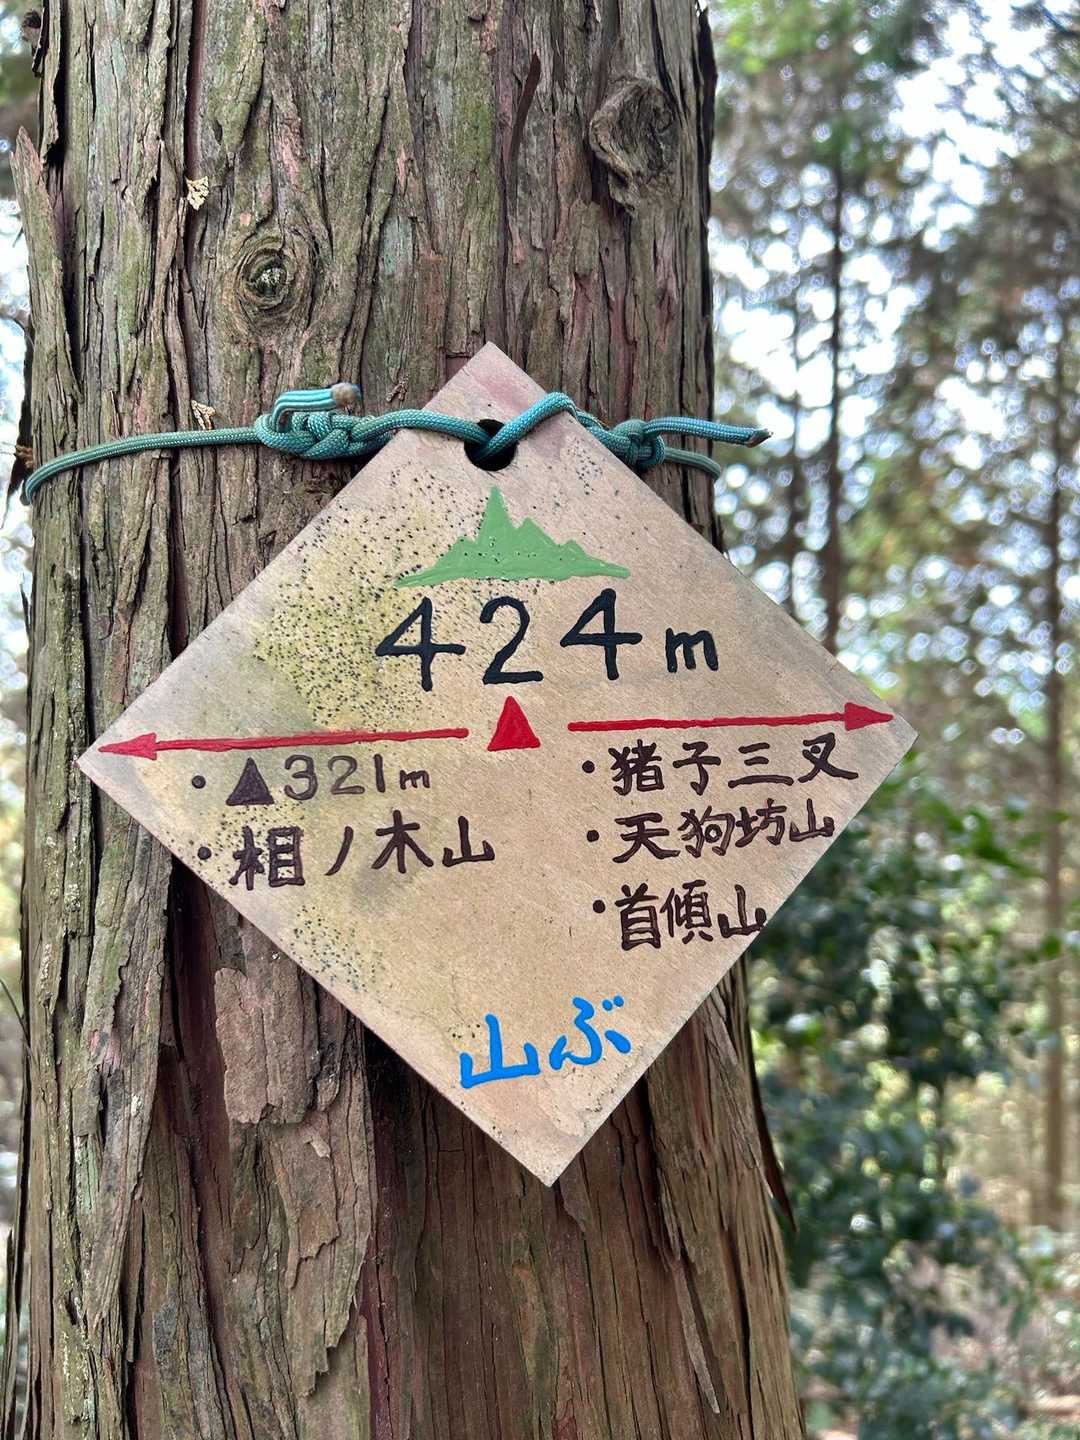 424m
・▲321m
・相ノ木山
・猪子三叉
・天狗坊山
・首傾山
山んぶ